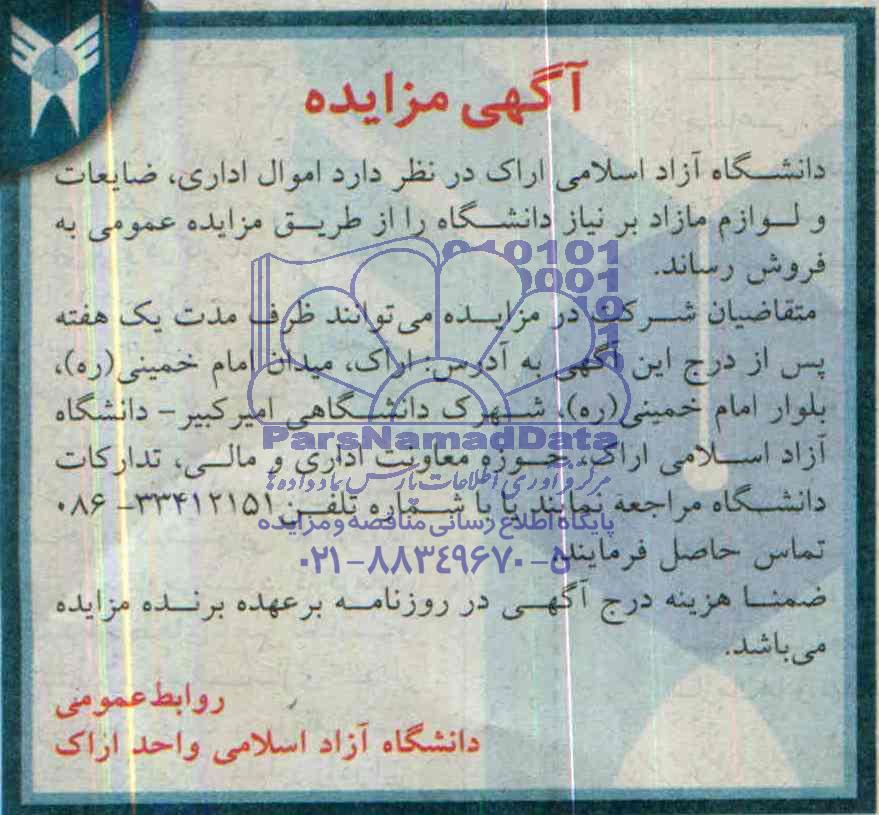 آگهی مزایده
دانشگاه آزاد اسلامی اراک در نظر دارد اموال اداری، ضایعات
و لوازم مازاد بر نیاز دانشگاه را از طریق مزایده عمومی به
فروش رساند.
متقاضیان شرکت در مزایده می‌توانند ظرف مدت یک هفته
پس از درج این آگهی به آدرس: اراک، میدان امام خمینی(ره)،
بلوار امام خمینی(ره)، شهرک دانشگاهی امیرکبیر- دانشگاه
آزاد اسلامی اراک، حوزه معاونت اداری و مالی، تدارکات
دانشگاه مراجعه نمایند یا با شماره تلفن ۳۳۴۱۲۱۵۱- ۰۸۶
تماس حاصل فرمایند.
ضمنا هزینه درج آگهی در روزنامه برعهده برنده مزایده
می‌باشد.
روابط عمومی
دانشگاه آزاد اسلامی واحد اراک
ParsNamadData
مرکز فرآوری اطلاعات پارس نماد داده ها
پایگاه اطلاع رسانی مناقصه و مزایده
۰۲۱-۸۸۳۴۹۶۷۰-۵